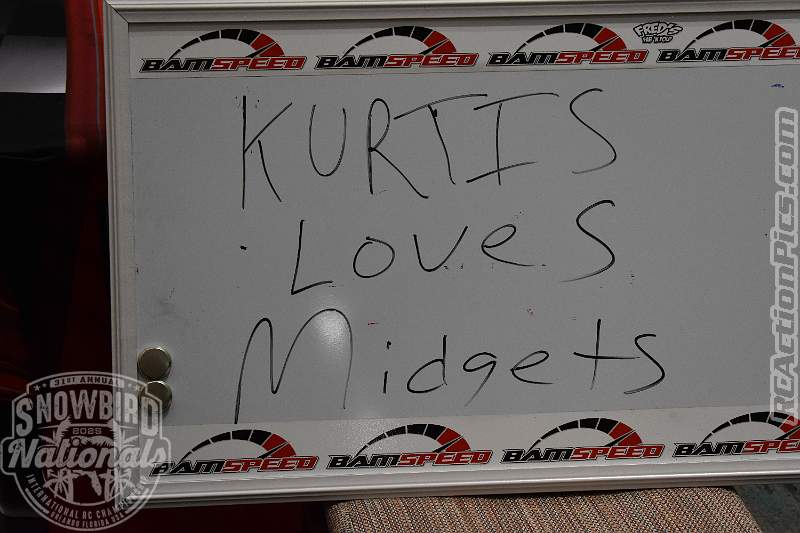 BAMSPEED BAMSPEED BAMSPEED FRED'S BAMSPEED
KURTIS
LoveS
Midgets
BAMSPEED BAMSPEED BAMSPEED BAMSPEED
RCActionPics.com
51ST ANNUAL
SNOWBIRD
2025
Nationals
INTERNATIONAL RC CHAMPS
ORLANDO FLORIDA USA